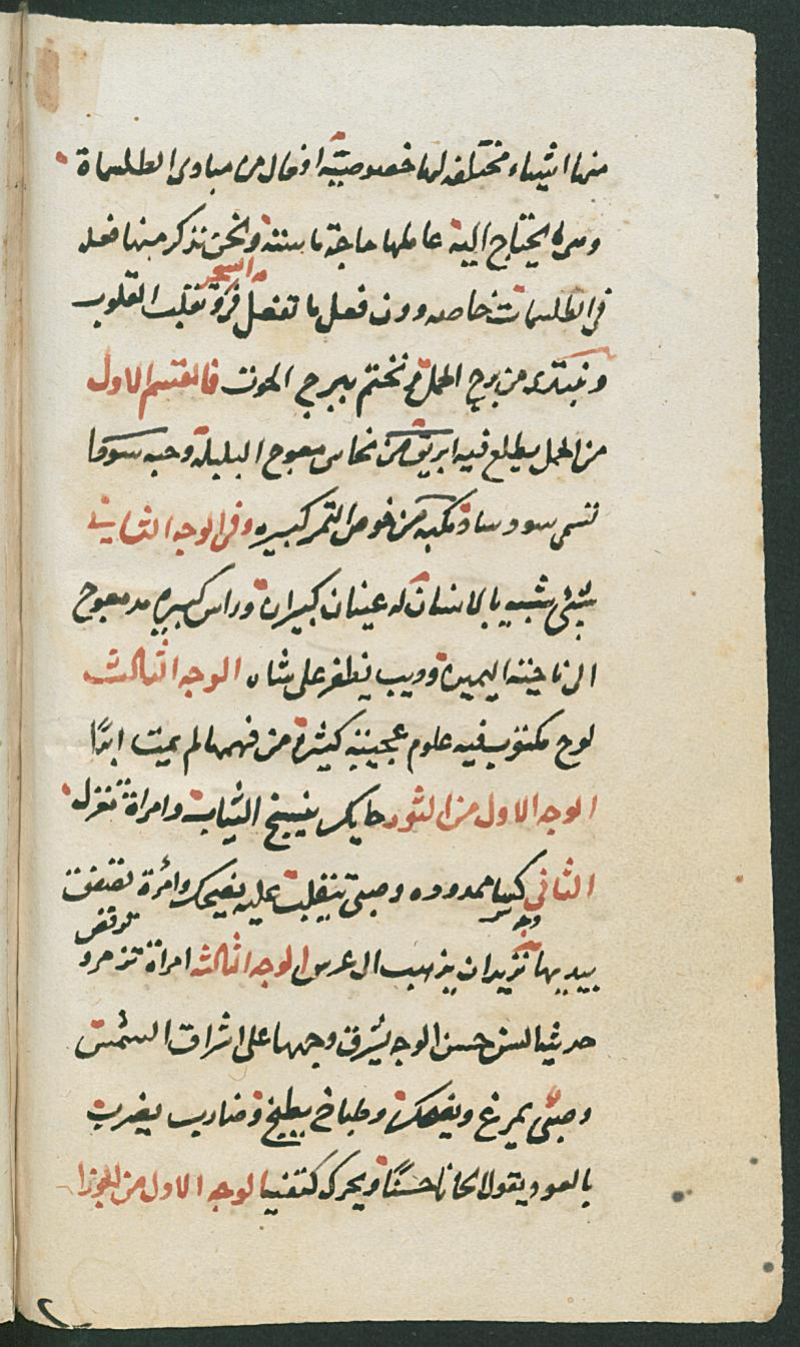 منها اشياء مختلفه لها خصوصيته افعال من مبادى الطلسماة
وسر لا يحتاج اليه عاملها حاجة ماسته ونحن نذكر منها فعله
من السحر
فى الطلسمات خاصه دون فعل ما تفضل فرقة تقليب القلوب
ونبتدى من برج الحمل ثم نختم ببرج الحوت فالقسم الاول
من الحمل يطلع فيه ابريق من نحاس معوج البلبلة وحبه
تسمى من خوص التمر كبيره وفى الوجه الثانى
شئ شبيه بالانسان له عينان كبيران وراس كبيره معوج
الى ناحيته اليمين وديب يظفر على شاه الوجه الثالث
لوح مكتوب فيه علوم عجيبة كثيرة من فهمها لم يمت ابدًا
الوجه الاول من الثور حايك ينسج الثياب وامراة تغزل
الثانى كسا ممدوده وصبى يتقلب عليه يضحك وامرة تصفق
وترقص
بيديها تريد ان يذهب الى عرس الوجه الثالثه امراة تزمر و
حديث السن حسن الوجه يشرق وجهها على اشراق الشمس
وصبى يمرغ ويضحك وطباخ يطبخ وضارب يضرب
بالعود ويقول الحانا حسنًا ويحرك كتفيه الوجه الاول من الجوزا